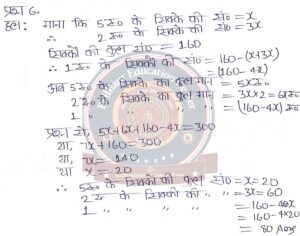 प्रश्न 6.
हल: माना कि 5रु० के सिक्के की सं० = x
2रु० के सिक्के की सं० = 3x
सिक्कों की कुल सं० = 160
∴ 1रु० के सिक्कों की सं० = 160-(x+3x)
= (160-4x)
अब 5रु० के सिक्के का कुल मान = 5x रु०
2रु० के सिक्के का कुल मान = 3x×2 = 6x रु०
1 " " " " " = (160-4x) रु०
प्रश्न से, 5x+6x+160-4x = 300
या, 7x+160 = 300
या, 7x = 140
या x = 20
∴ 5रु० के सिक्कों की कुल सं० = x = 20
2रु० के सिक्कों की " " = 3x = 60
1 " " " " = 160-4x
= 160-4×20
= 80 Ans